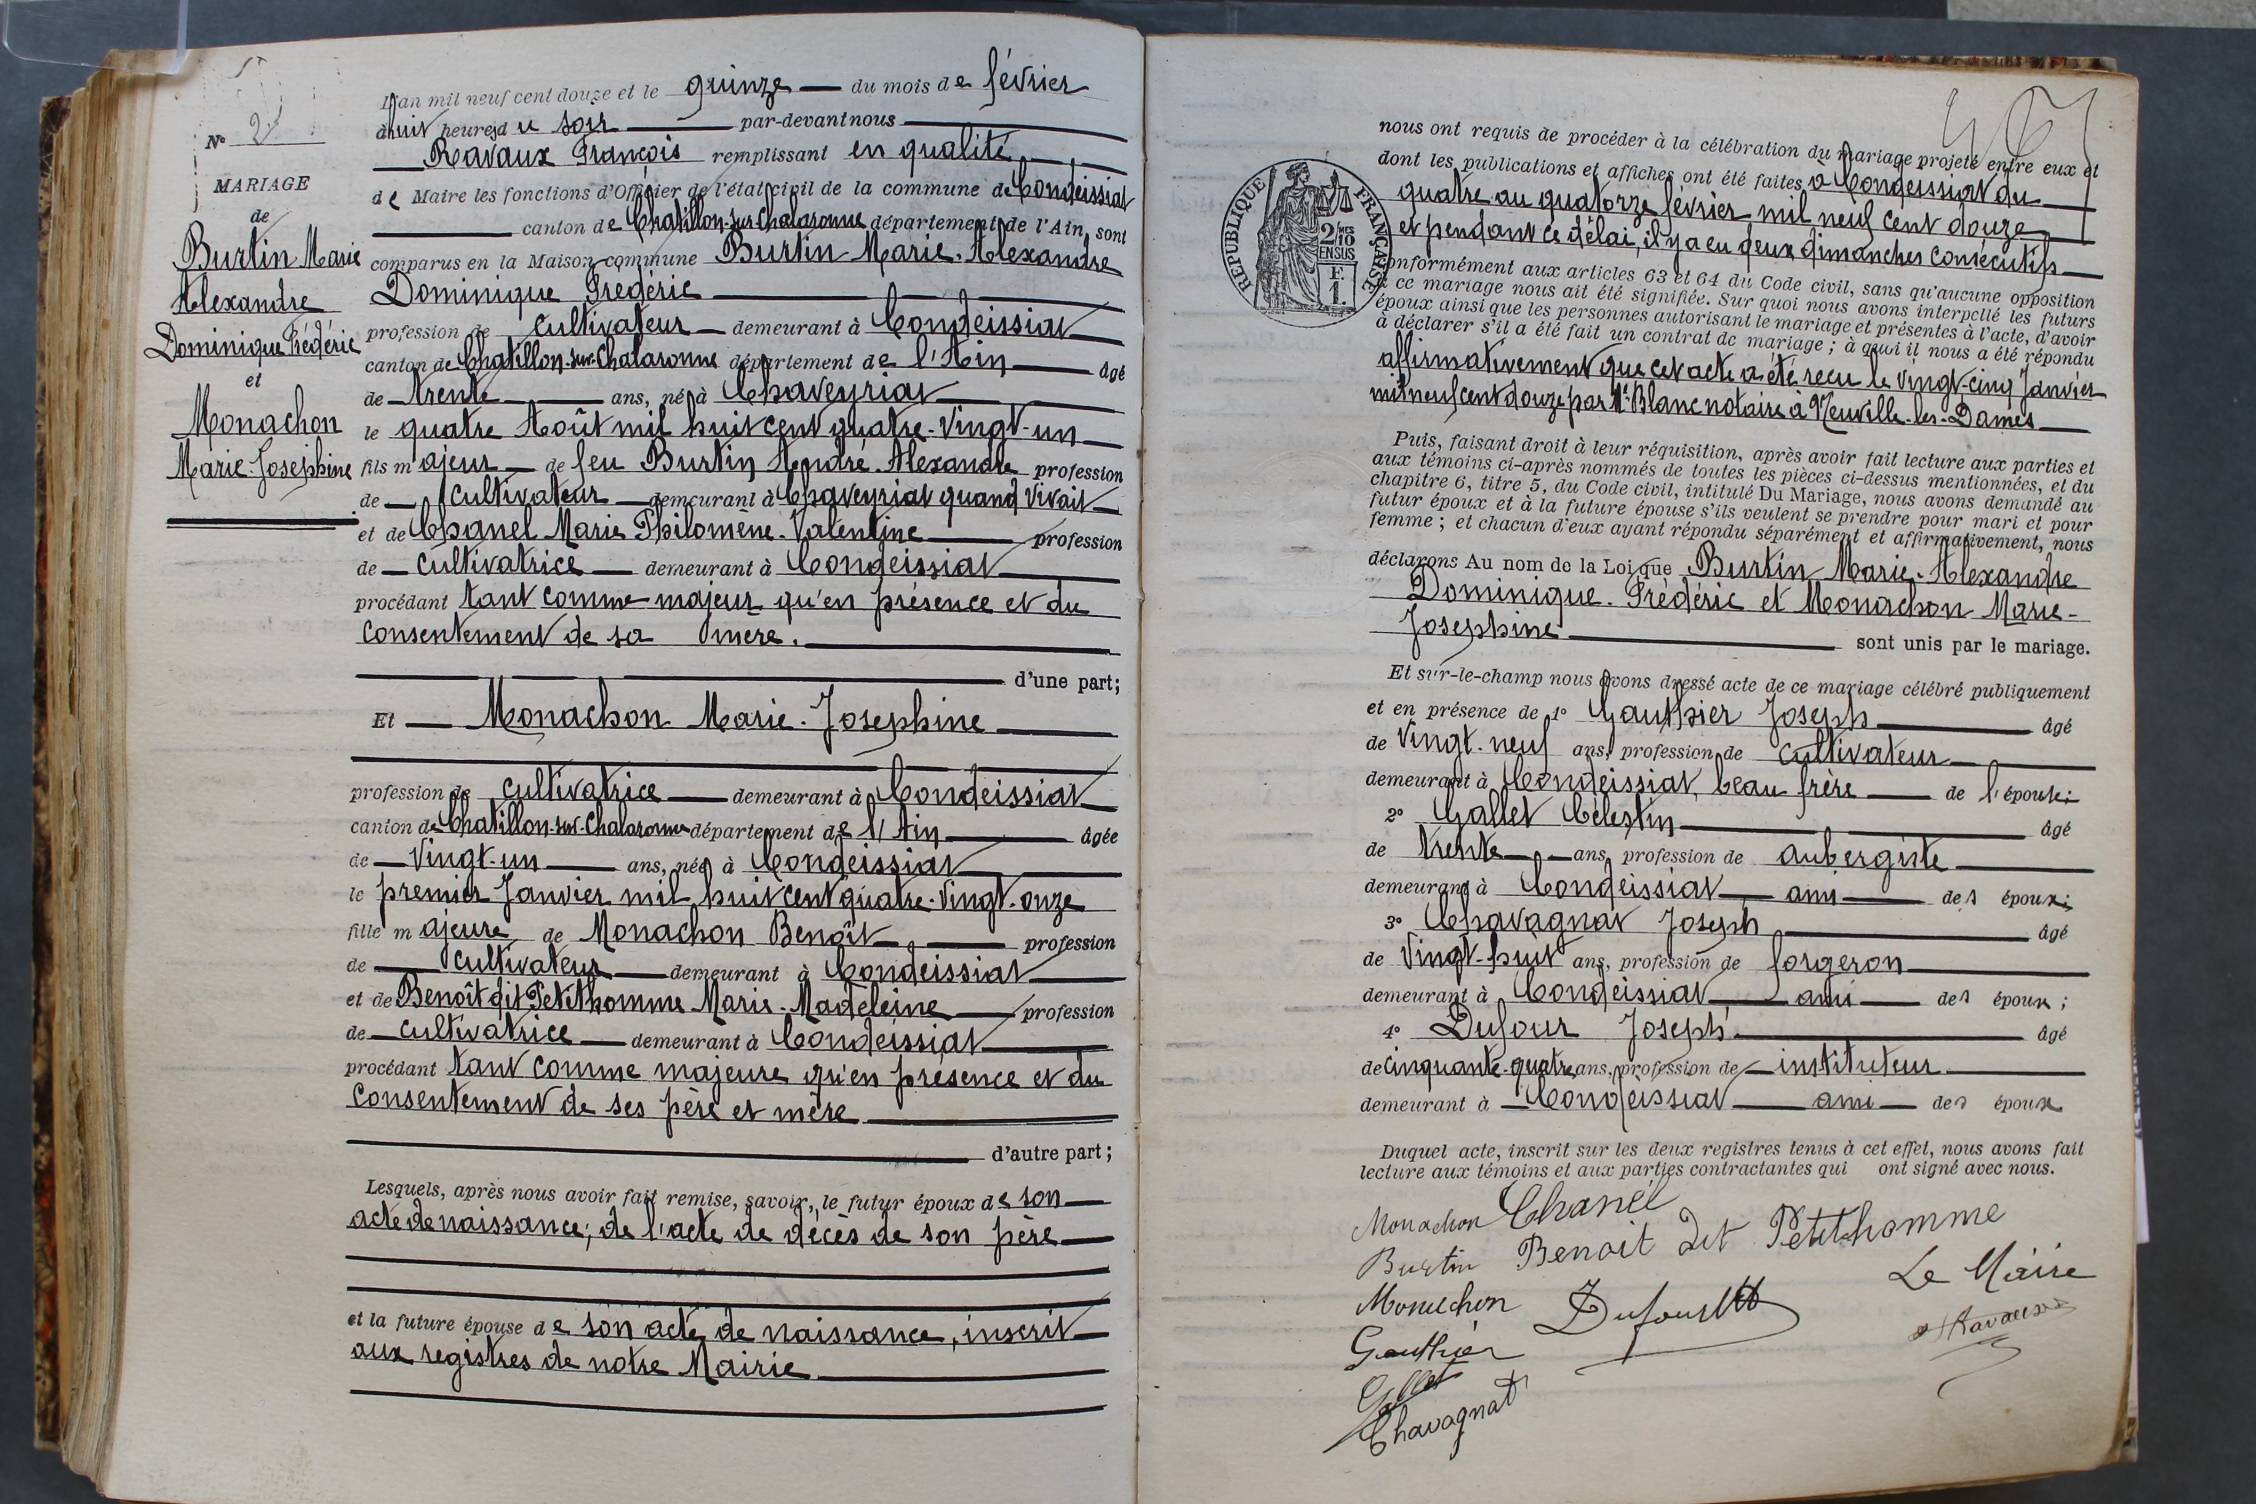 N° 2
MARIAGE
de
Burtin Marie
Alexandre
Dominique Frédéric
et
Monachon
Marie-Josephine
L'an mil neuf cent douze et le quinze du mois de février
à huit heures du soir par-devant nous
Ravaux François remplissant en qualité
de Maire les fonctions d'Officier de l'état civil de la commune de Condeissiat
canton de Chatillon-sur-Chalaronne département de l'Ain, sont
comparus en la Maison commune Burtin Marie-Alexandre
Dominique Frédéric
profession de cultivateur demeurant à Condeissiat
canton de Chatillon-sur-Chalaronne département de l'Ain âgé
de trente ans, né à Chaveyriat
le quatre Août mil huit cent quatre-vingt-un
fils majeur de feu Burtin André-Alexandre profession
de cultivateur demeurant à Chaveyriat quand vivait
et de Chanel Marie Philomène-Valentine profession
de cultivatrice demeurant à Condeissiat
procédant tant comme majeur qu'en présence et du
consentement de sa mère.
d'une part;
Et Monachon Marie-Josephine
profession de cultivatrice demeurant à Condeissiat
canton de Chatillon-sur-Chalaronne département de l'Ain âgée
de vingt-un ans, née à Condeissiat
le premier Janvier mil huit cent quatre-vingt-onze
fille majeure de Monachon Benoît profession
de cultivateur demeurant à Condeissiat
et de Benoît dit Petithomme Marie-Madeleine profession
de cultivatrice demeurant à Condeissiat
procédant tant comme majeure qu'en présence et du
consentement de ses père et mère
d'autre part;
Lesquels, après nous avoir fait remise, savoir, le futur époux de son
acte de naissance; de l'acte de décès de son père
et la future épouse de son acte de naissance, inscrit
aux registres de notre Mairie
nous ont requis de procéder à la célébration du mariage projeté entre eux et
dont les publications et affiches ont été faites à Condeissiat du
quatre au quatorze février mil neuf cent douze
et pendant ce délai, il y a eu deux dimanches consécutifs
conformément aux articles 63 et 64 du Code civil, sans qu'aucune opposition
à ce mariage nous ait été signifiée. Sur quoi nous avons interpellé les futurs
époux ainsi que les personnes autorisant le mariage et présentes à l'acte, d'avoir
à déclarer s'il a été fait un contrat de mariage; à quoi il nous a été répondu
affirmativement que cet acte a été reçu le vingt-cinq Janvier
mil neuf cent douze par Me Blanc notaire à Neuville-les-Dames
RÉPUBLIQUE FRANÇAISE
2/10 MES
EN SUS
F.
1.
Puis, faisant droit à leur réquisition, après avoir fait lecture aux parties et
aux témoins ci-après nommés de toutes les pièces ci-dessus mentionnées, et du
chapitre 6, titre 5, du Code civil, intitulé Du Mariage, nous avons demandé au
futur époux et à la future épouse s'ils veulent se prendre pour mari et pour
femme; et chacun d'eux ayant répondu séparément et affirmativement, nous
déclarons Au nom de la Loi que Burtin Marie-Alexandre
Dominique-Frédéric et Monachon Marie-
Josephine sont unis par le mariage.
Et sur-le-champ nous avons dressé acte de ce mariage célébré publiquement
et en présence de 1° Gauthier Joseph âgé
de vingt-neuf ans, profession de cultivateur
demeurant à Condeissiat, beau frère de l'épouse;
2° Gallet Célestin âgé
de trente ans, profession de aubergiste
demeurant à Condeissiat ami des époux;
3° Chavagnat Joseph âgé
de vingt-huit ans, profession de forgeron
demeurant à Condeissiat ami des époux;
4° Dufour Joseph âgé
de cinquante-quatre ans, profession de instituteur
demeurant à Condeissiat ami des époux
Duquel acte, inscrit sur les deux registres tenus à cet effet, nous avons fait
lecture aux témoins et aux parties contractantes qui ont signé avec nous.
Monachon Chanel
Burtin Benoit dit Petithomme
Monachon Dufour Le Maire
Gauthier Ravaux
Gallet
Chavagnat